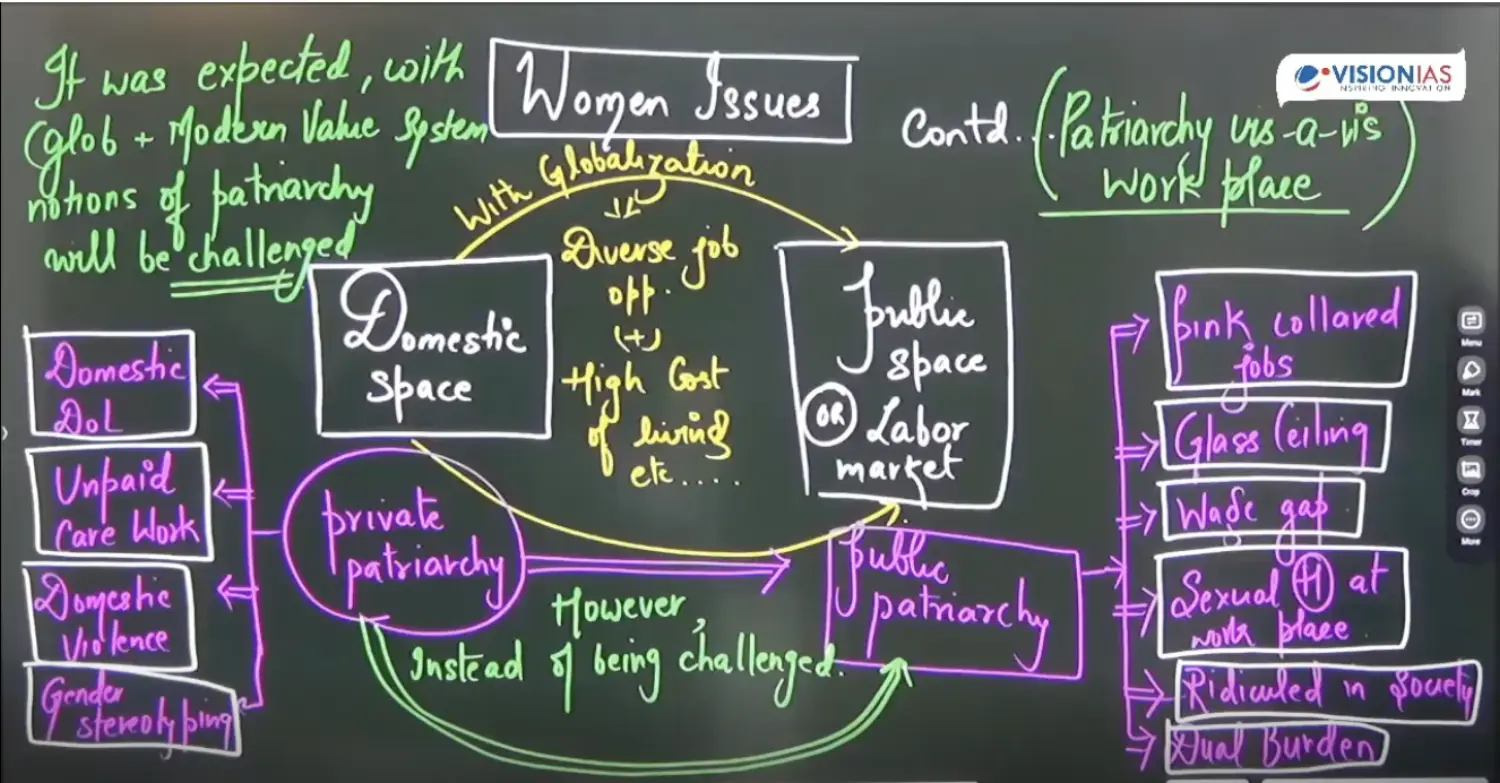 It was expected, with
Glob + Modern Value System
notions of patriarchy
will be challenged
Women Issues
Contd...
(Patriarchy vis-a-vis
work place)
VISIONIAS
INSPIRING INNOVATION
With Globalization
Diverse job
opp.
(+)
High Cost
of living
etc.....
Domestic
space
Public
space
OR Labor
market
Domestic
DoL
Unpaid
Care Work
Domestic
Violence
Gender
stereotyping
private
patriarchy
However,
Instead of being challenged.
public
patriarchy
Pink collared
jobs
Glass Ceiling
Wage gap
Sexual H at
work place
Ridiculed in Society
Dual Burden
Menu
Mark
Timer
Crop
More